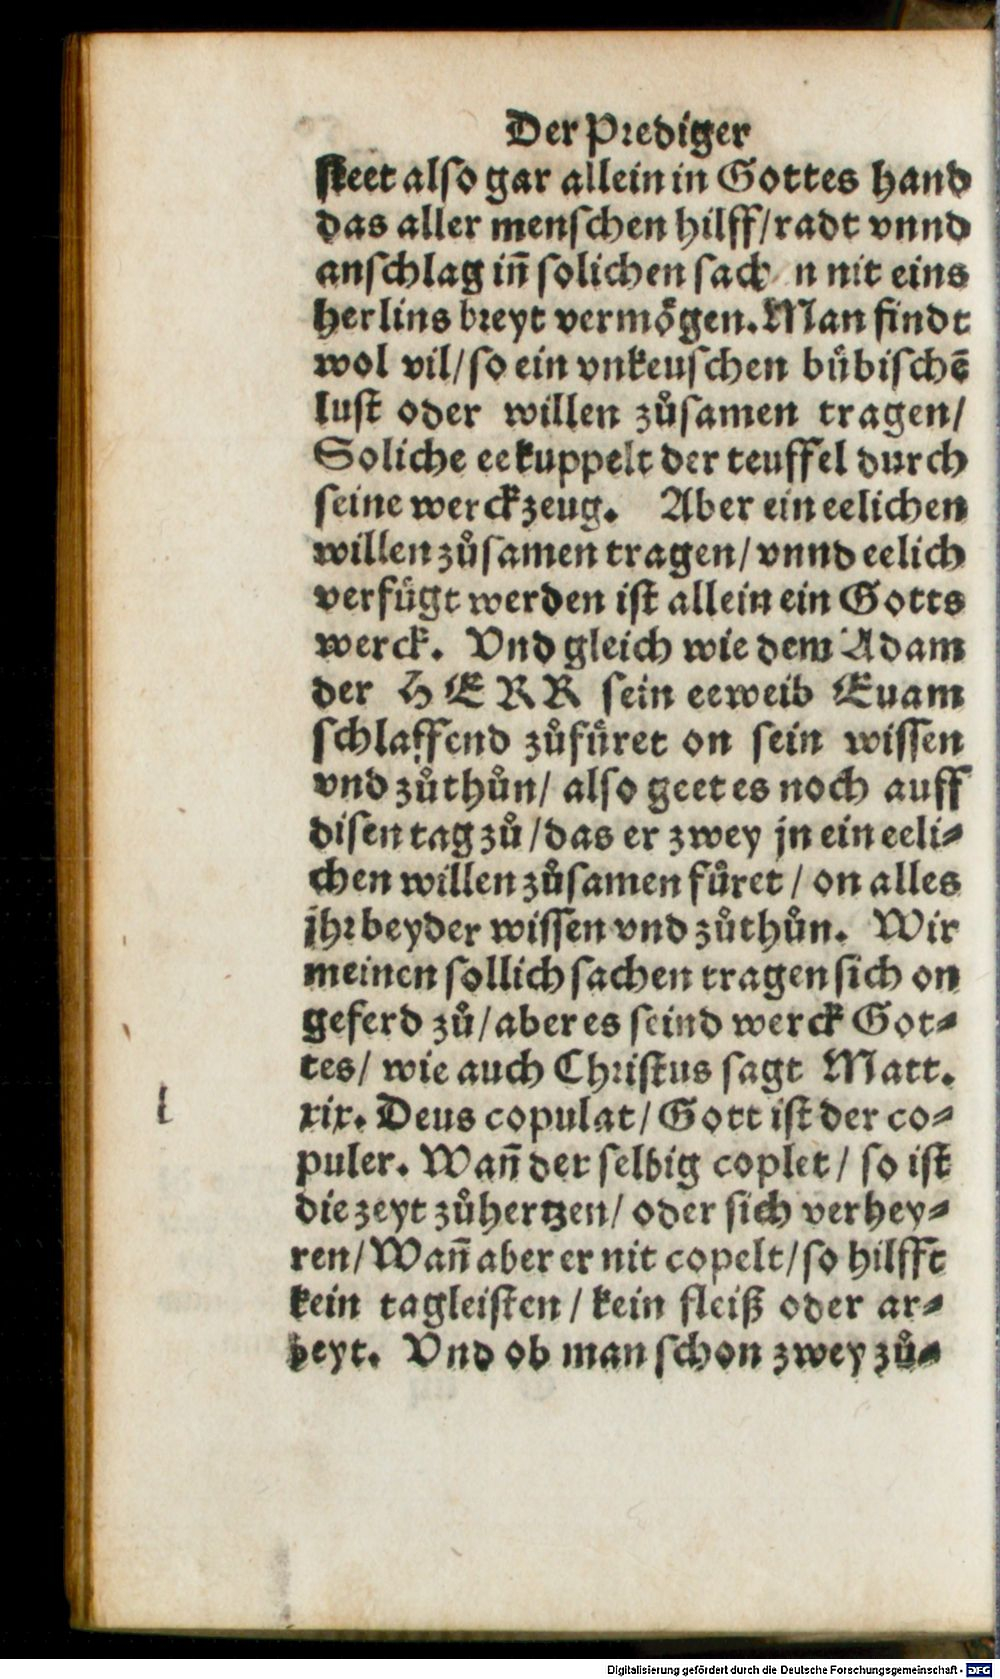 Der Prediger
steet also gar allein in Gottes hand
das aller menschen hilff/radt vnnd
anschlag iñ solichen nit eins
herlins breyt vermögen. Man findt
wol vil/so ein vnkeuschen bübischē
lust oder willen zůsamen tragen/
Soliche ee kuppelt der teuffel durch
seine werckzeug. Aber ein eelichen
willen zůsamen tragen/vnnd eelich
verfügt werden ist allein ein Gotts
werck. Vnd gleich wie dem Adam
der HERR sein eeweib Euam
schlaffend zůfüret on sein wissen
vnd zůthůn/ also geet es noch auff
disen tag zů/das er zwey jn ein eeli-
chen willen zůsamen füret / on alles
jhr beyder wissen vnd zůthůn. Wir
meinen sollich sachen tragen sich on
geferd zů/aber es seind werck Got-
tes/ wie auch Christus sagt Matt.
xix. Deus copulat/Gott ist der co-
puler. Wañ der selbig coplet / so ist
die zeyt zůhertzen/ oder sich verhey-
ren/Wañ aber er nit copelt/so hilfft
kein tagleisten / kein fleiß oder ar-
beyt. Vnd ob man schon zwey zů-
Digitalisierung gefördert durch die Deutsche Forschungsgemeinschaft - DFG